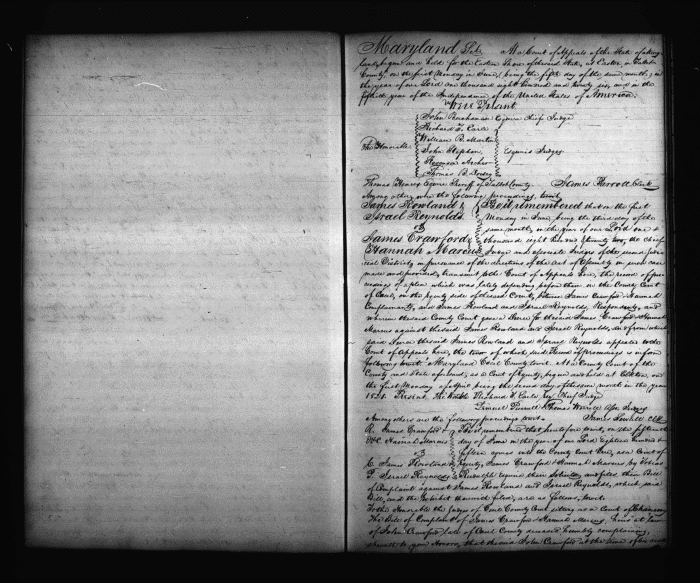 Maryland Sct. At a Court of Appeals of the State of Mary
land, begun and held for the Eastern Shore of the said State, at Easton, in Talbot
County, on the first Monday in June, (being the fifth day of the said month,) in
the year of our Lord one thousand eight hundred and twenty six, and in the
fiftieth year of the Independence of the United States of America.
Were Present
John Buchanan Esquire Chief Judge
Richard T. Earle
William B. Martin
The Honorable John Stephen, Esquires Judges
Stevenson Archer
Thomas B. Dorsey
Thomas Henrix Esquire Sheriff of Talbot County James Parrott Clerk
Among other were the following proceedings, to wit.
James Rowland & Be it remembered that on the first
Israel Reynolds Monday in June, being the third day of the
vs same month, in the year of our Lord one
James Crawford & thousand eight hundred & twenty two, the Chief
Hannah Marcus Judge and associate Judges of the second Judi
cial District, in pursuance of the directions of the act of Assembly in such case
made and provided, transmit to the Court of Appeals here, the record of pro
ceedings of a plea which was lately depending before them in the County Court
of Cecil, on the equity side of the said County, between James Crawford & Hannah
Complainants, and James Rowland and Israel Reynolds, Respondents, and
wherein the said County Court gave a decree for the said James Crawford & Hannah
Marcus against the said James Rowland and Israel Reynolds, and from which
said decree the said James Rowland and Israel Reynolds appealed to the
Court of Appeals here, the tenor of which said record of proceedings is in form
following to wit: Maryland Cecil County to wit. At a County Court of the
County and State aforesaid, as a Court of Equity, begun and held at Elkton, on
the first Monday of April being the second day of the same month in the year
1821. Present. The Honble Richard T. Earle Esq Chief Judge
Lemuel Purnell & Thomas Worrell Asso. Judges
Among others are the following proceedings to wit. James Sewall Clk
R. James Crawford & Be it remembered that heretofore to wit, on the fifteenth
Hannah Marcus day of June in the year of our Lord Eighteen hundred &
vs fifteen came into the County Court here, as a Court of
James Rowland & Equity, James Crawford & Hannah Marcus by Tobias
Israel Reynolds Rudulph Esquire their Solicitor, and filed their Bill
of Complaint against James Rowland and Israel Reynolds, which said
Bill, and the Exhibit therewith filed, are as follows, to wit.
To the Honorable the Judges of Cecil County Court sitting as a Court of Chancery
The Bill of Complaint of James Crawford & Hannah Marcus, heirs at law
of John Crawford late of Cecil County deceased humbly complaining,
sheweth to your Honors, that the said John Crawford at the time of his